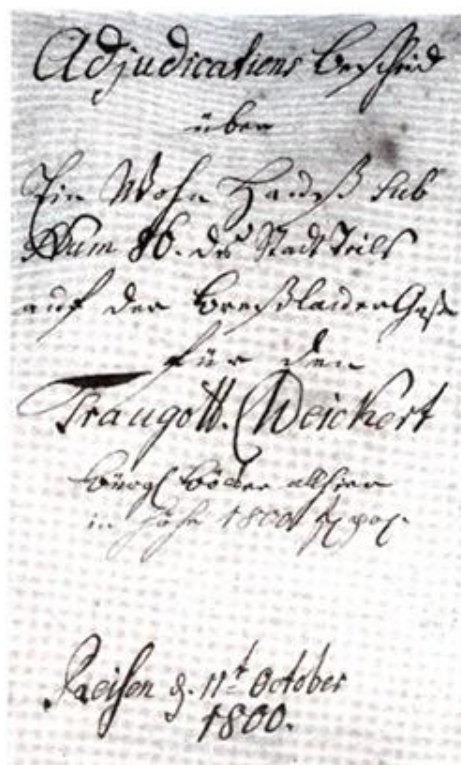 Adjudications Bescheid
über
Ein Wohn Hauß sub
Num 86. des Stadt Teils
auf der Breßlauer Gaße
für den
Traugott Weickert
bürgl Böttcher allhier
in Höhe 1800
Reisen d. 11t October
1800.